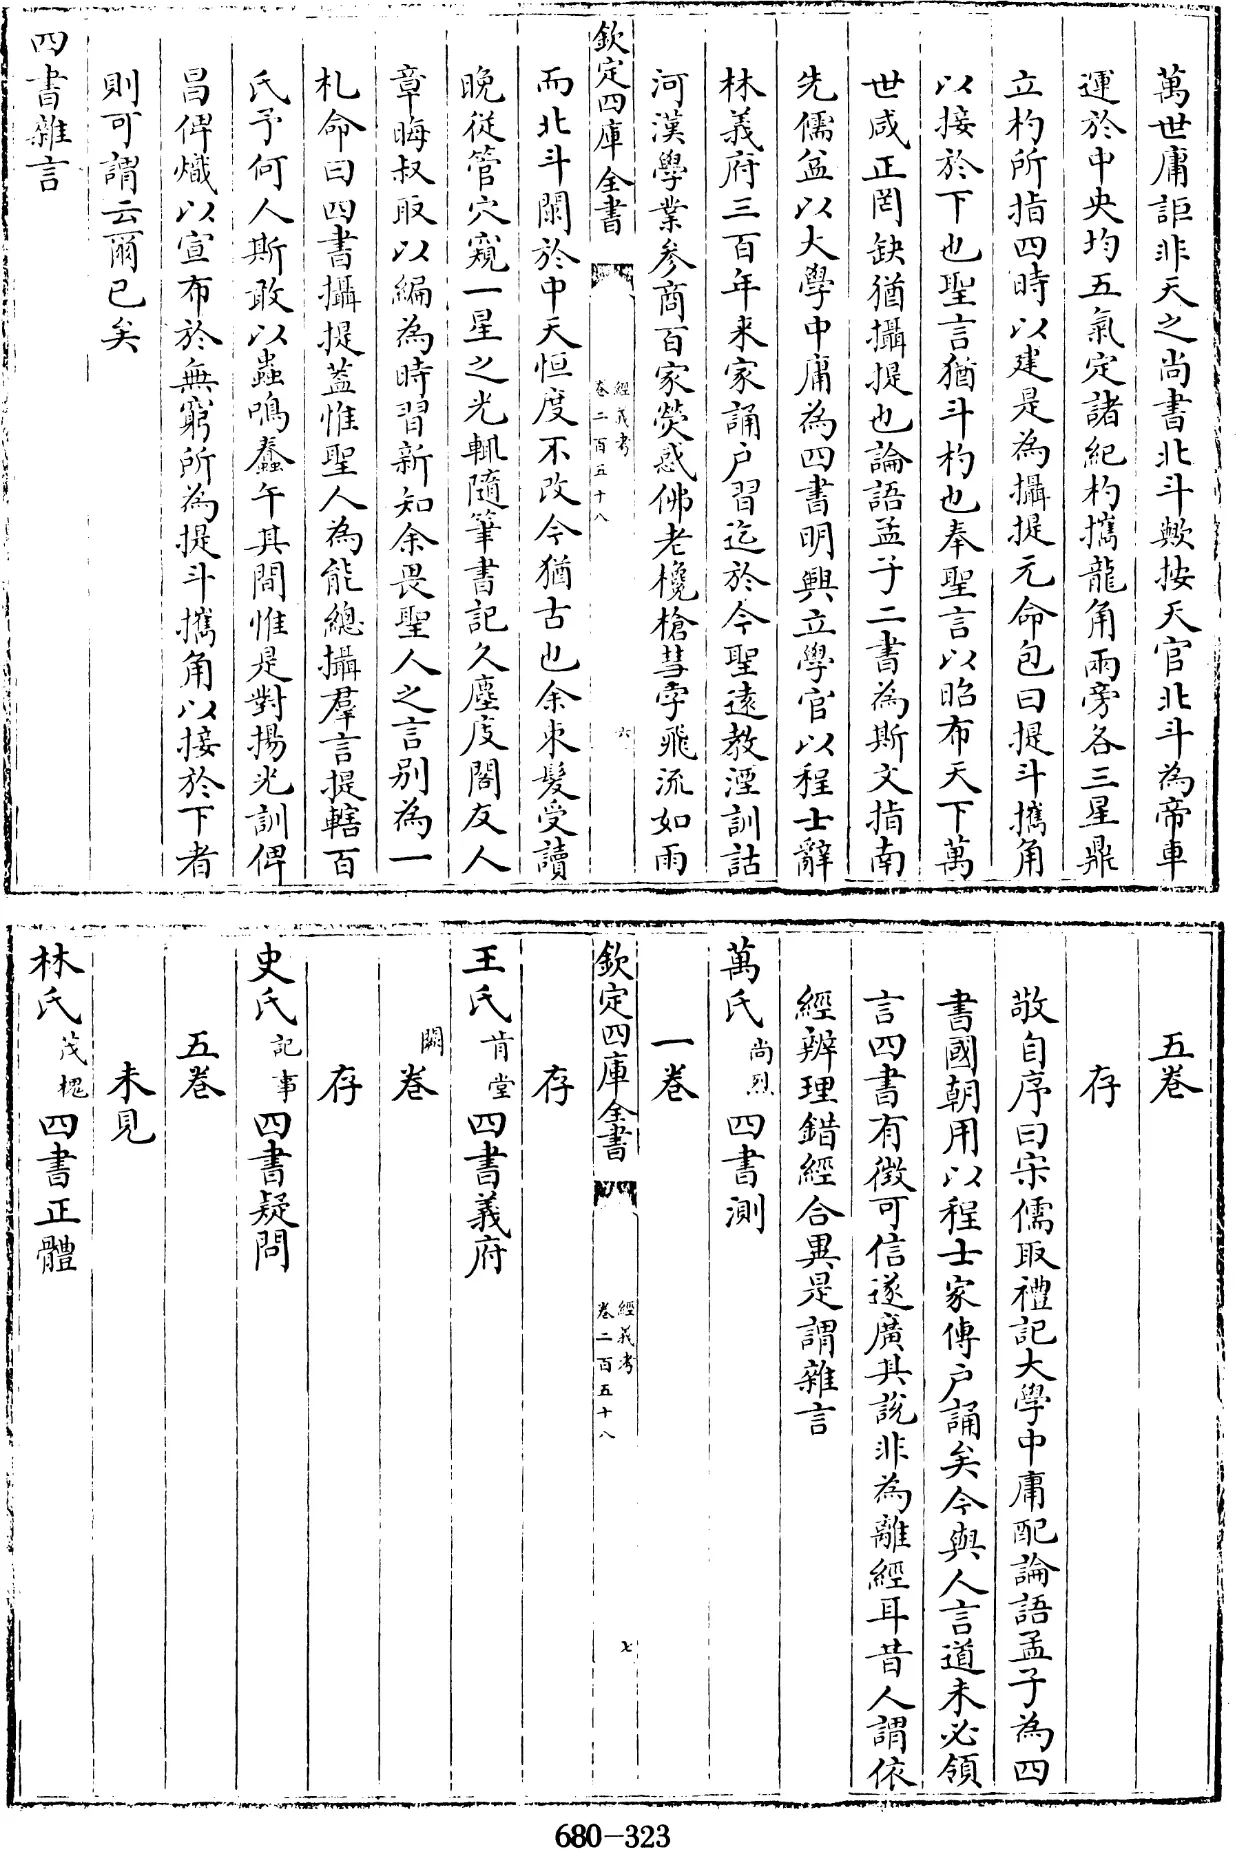 萬世庸詎非天之尚書北斗歟按天官北斗為帝車
運於中央均五氣定諸紀杓攜龍角兩旁各三星鼎
立杓所指四時以建是為攝提元命包曰提斗攜角
以接於下也聖言猶斗杓也奉聖言以昭布天下萬
世咸正罔缺猶攝提也論語孟子二書為斯文指南
先儒益以大學中庸為四書明興立學官以程士辭
林義府三百年来家誦户習迄於今聖遠教湮訓詁
河漢學業參商百家熒惑佛老欃槍彗孛飛流如雨
欽定四庫全書
經義考
卷二百五十八
六
而北斗闌於中天恒度不改今猶古也余束髮受讀
晚從管穴窺一星之光輒隨筆書記久塵庋閣友人
章晦叔取以編為時習新知余畏聖人之言別為一
札命曰四書攝提蓋惟聖人為能總攝羣言提轄百
氏予何人斯敢以蟲鳴蠢午其間惟是對揚光訓俾
昌俾熾以宣布於無窮所為提斗攜角以接於下者
則可謂云爾已矣
四書雜言
五卷
存
敬自序曰宋儒取禮記大學中庸配論語孟子為四
書國朝用以程士家傳户誦矣今與人言道未必領
言四書有徵可信遂廣其說非為離經耳昔人謂依
經辨理錯經合異是謂雜言
萬氏尚烈四書測
一卷
欽定四庫全書
經義考
卷二百五十八
七
存
王氏肯堂四書義府
闕卷
存
史氏記事四書疑問
五卷
未見
林氏茂槐四書正體
680-323